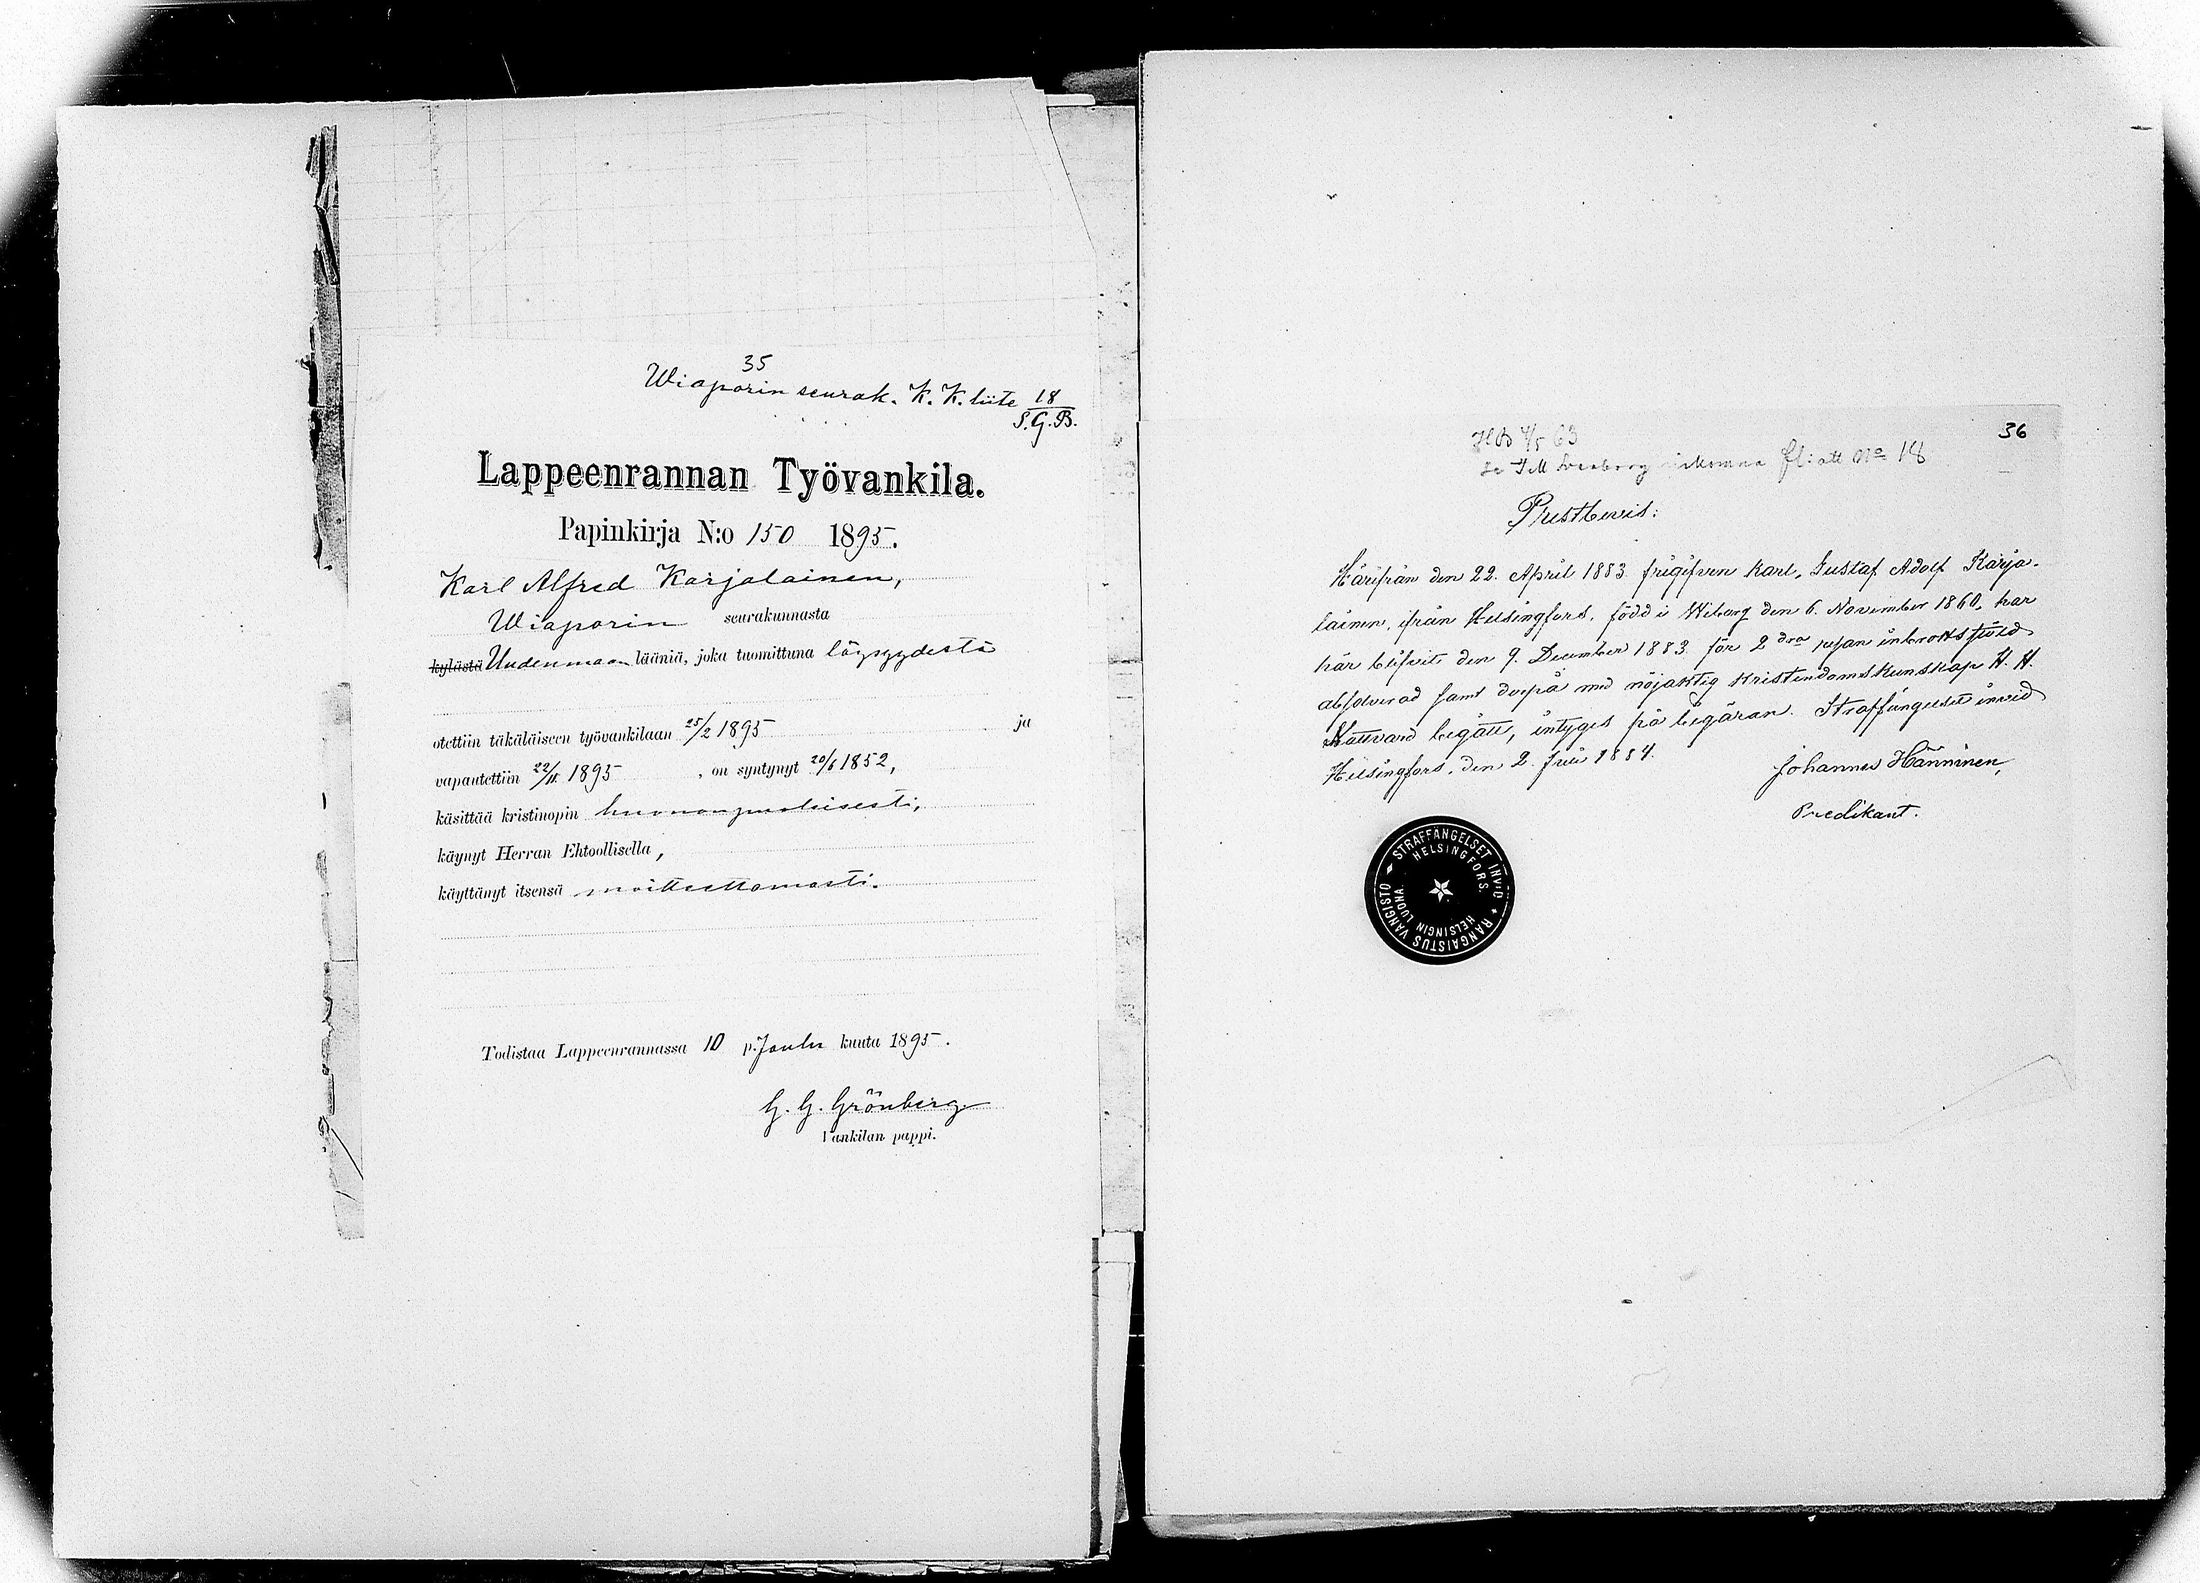 35
Wiaporin seurak. K. K. liite 18
S.G.B.
Lappeenrannan Työvankila.
Papinkirja N:o 150 1895.
Karl Alfred Karjalainen,
Wiaporin seurakunnasta
kylästä Uudenmaan lääniä, joka tuomittuna löysyydestä
otettiin täkäläiseen työvankilaan 25/2 1895 ja
vapautettiin 22/11 1895, on syntynyt 20/6 1852,
käsittää kristinopin huononpuolisesti,
käynyt Herran Ehtoollisella,
käyttänyt itsensä moitteettomasti.
Todistaa Lappeenrannassa 10 p. Joulu kuuta 1895.
G. G. Grönberg
Vankilan pappi.
36
No 18
Prestbevis:
Härifrån den 22. April 1883 frigifven karl, Gustaf Adolf Karja-
lainen, ifrån Helsingfors, född i Wiborg den 6. November 1860, har
här blifvit den 9. December 1883 för 2 dra resan inbrottsstöld
absolverad samt derpå med nöjaktig kristendomskunskap H. H.
Nattvard begått, intygas på begäran. Straffängelset invid
Helsingfors, den 2. Juli 1884.
Johannes Hänninen,
Predikant.
STRAFFÄNGELSET INVID HELSINGFORS.
RANGAISTUS VANGISTO HELSINGIN LUONA